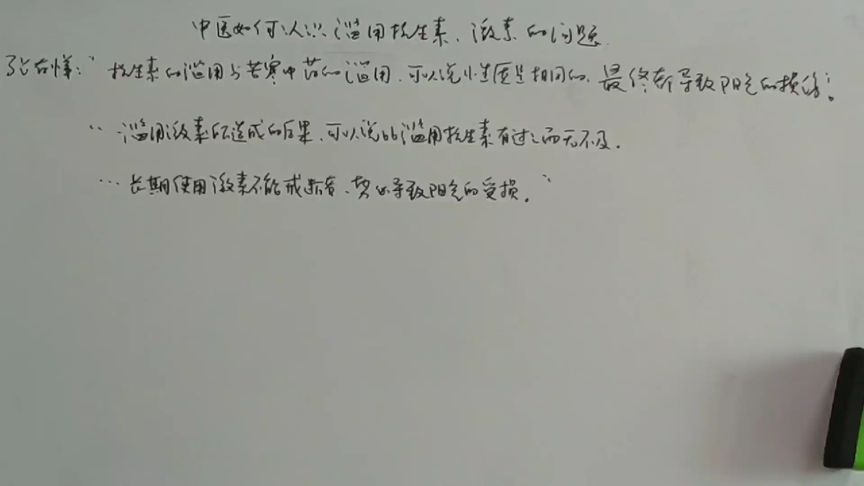 中医如何认识滥用抗生素、激素的问题
张存悌:“抗生素的滥用与苦寒中药的滥用,可以说性质是相同的,最终都导致阳气的损伤;
“滥用激素所造成的后果,可以说比滥用抗生素有过之而无不及.
…长期使用激素不能戒断者,势必导致阳气的受损.”